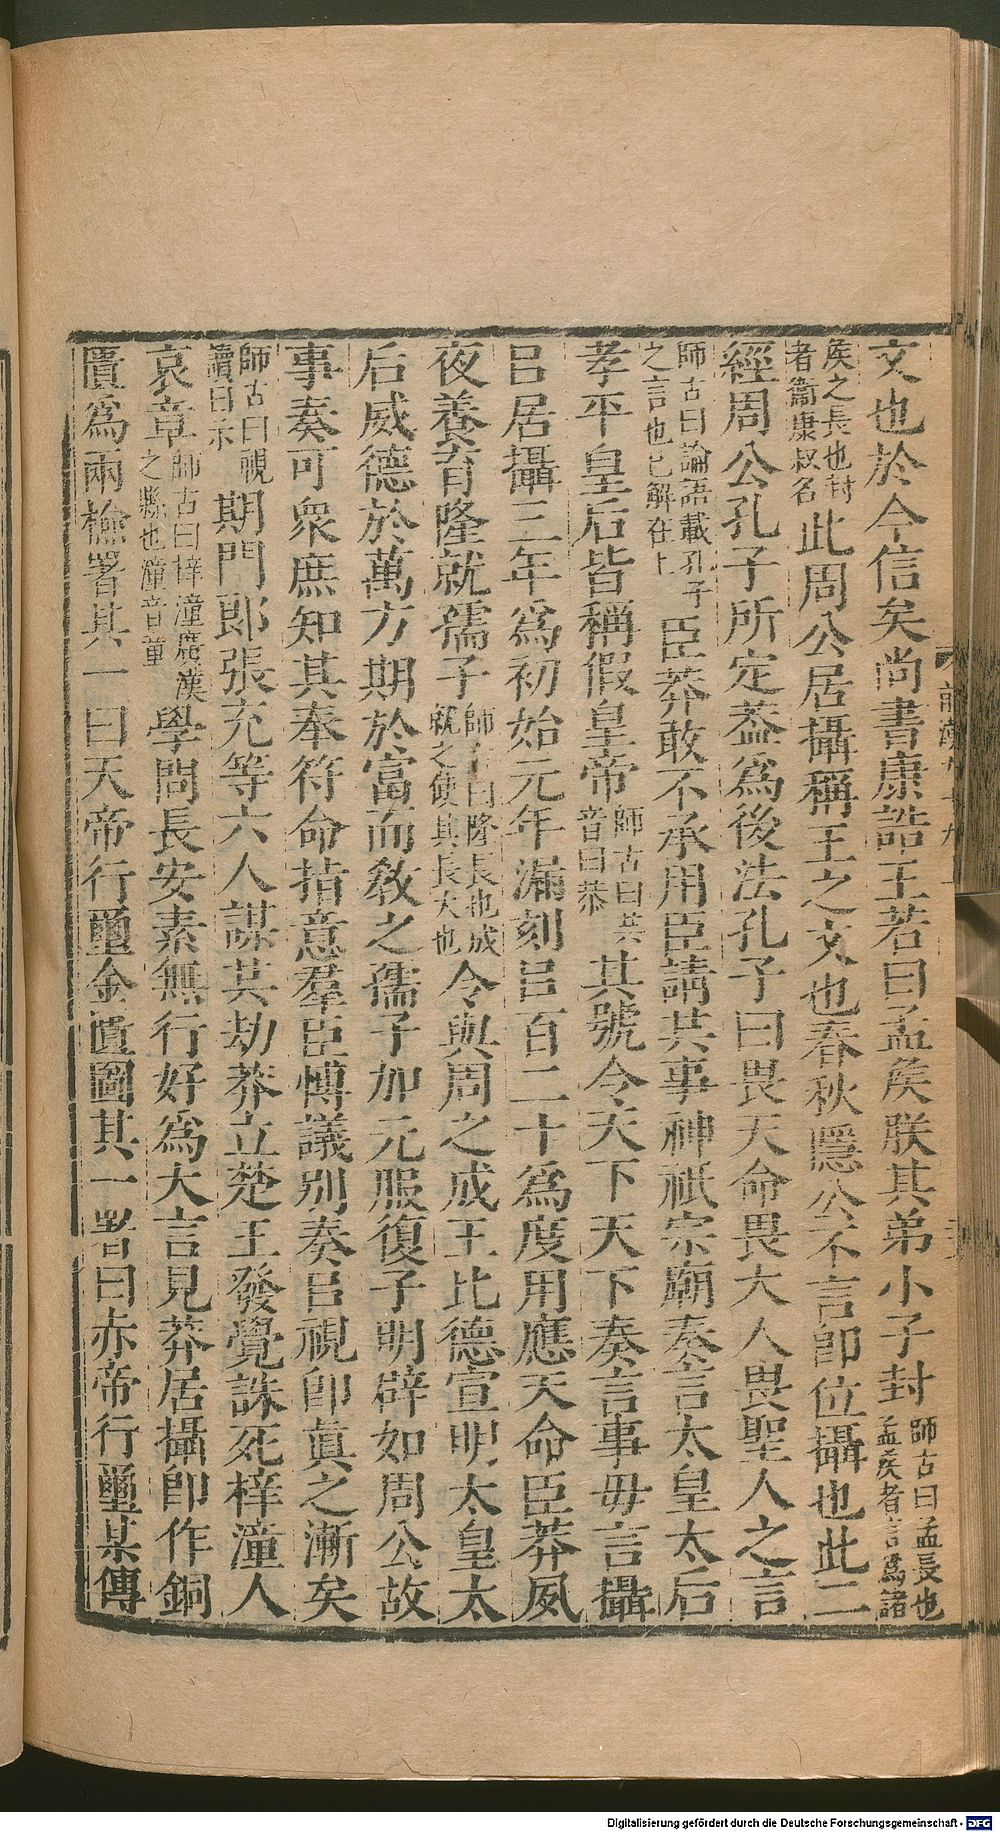 文也於今信矣尚書康誥王若曰孟矦朕其弟小子封師古曰孟長也孟矦者言爲諸
矦之長也封者衞康叔名此周公居攝稱王之文也春秋隱公不言即位攝也此二
經周公孔子所定葢爲後法孔子曰畏天命畏大人畏聖人之言
師古曰論語載孔子之言也已解在上臣莽敢不承用臣請共事神祇宗廟奏言太皇太后
孝平皇后皆稱假皇帝師古曰共音曰恭其號令天下天下奏言事毋言攝
㠯居攝三年爲初始元年漏刻㠯百二十爲度用應天命臣莽夙
夜養育隆就孺子師古曰隆長也成就之使其長大也令與周之成王比德宣明太皇太
后威德於萬方期於富而敎之孺子加元服復子明辟如周公故
事奏可衆庶知其奉符命指意羣臣愽議别奏㠯視即眞之漸矣
師古曰視讀曰示期門郎張充等六人謀共劫莽立楚王發覺誅死梓潼人
哀章師古曰梓潼廣漢之縣也潼音童學問長安素無行好爲大言見莽居攝即作銅
匱爲兩檢署其一曰天帝行璽金匱圖其一署曰赤帝行璽某傳
前漢九十九
Digitalisierung gefördert durch die Deutsche Forschungsgemeinschaft - DFG